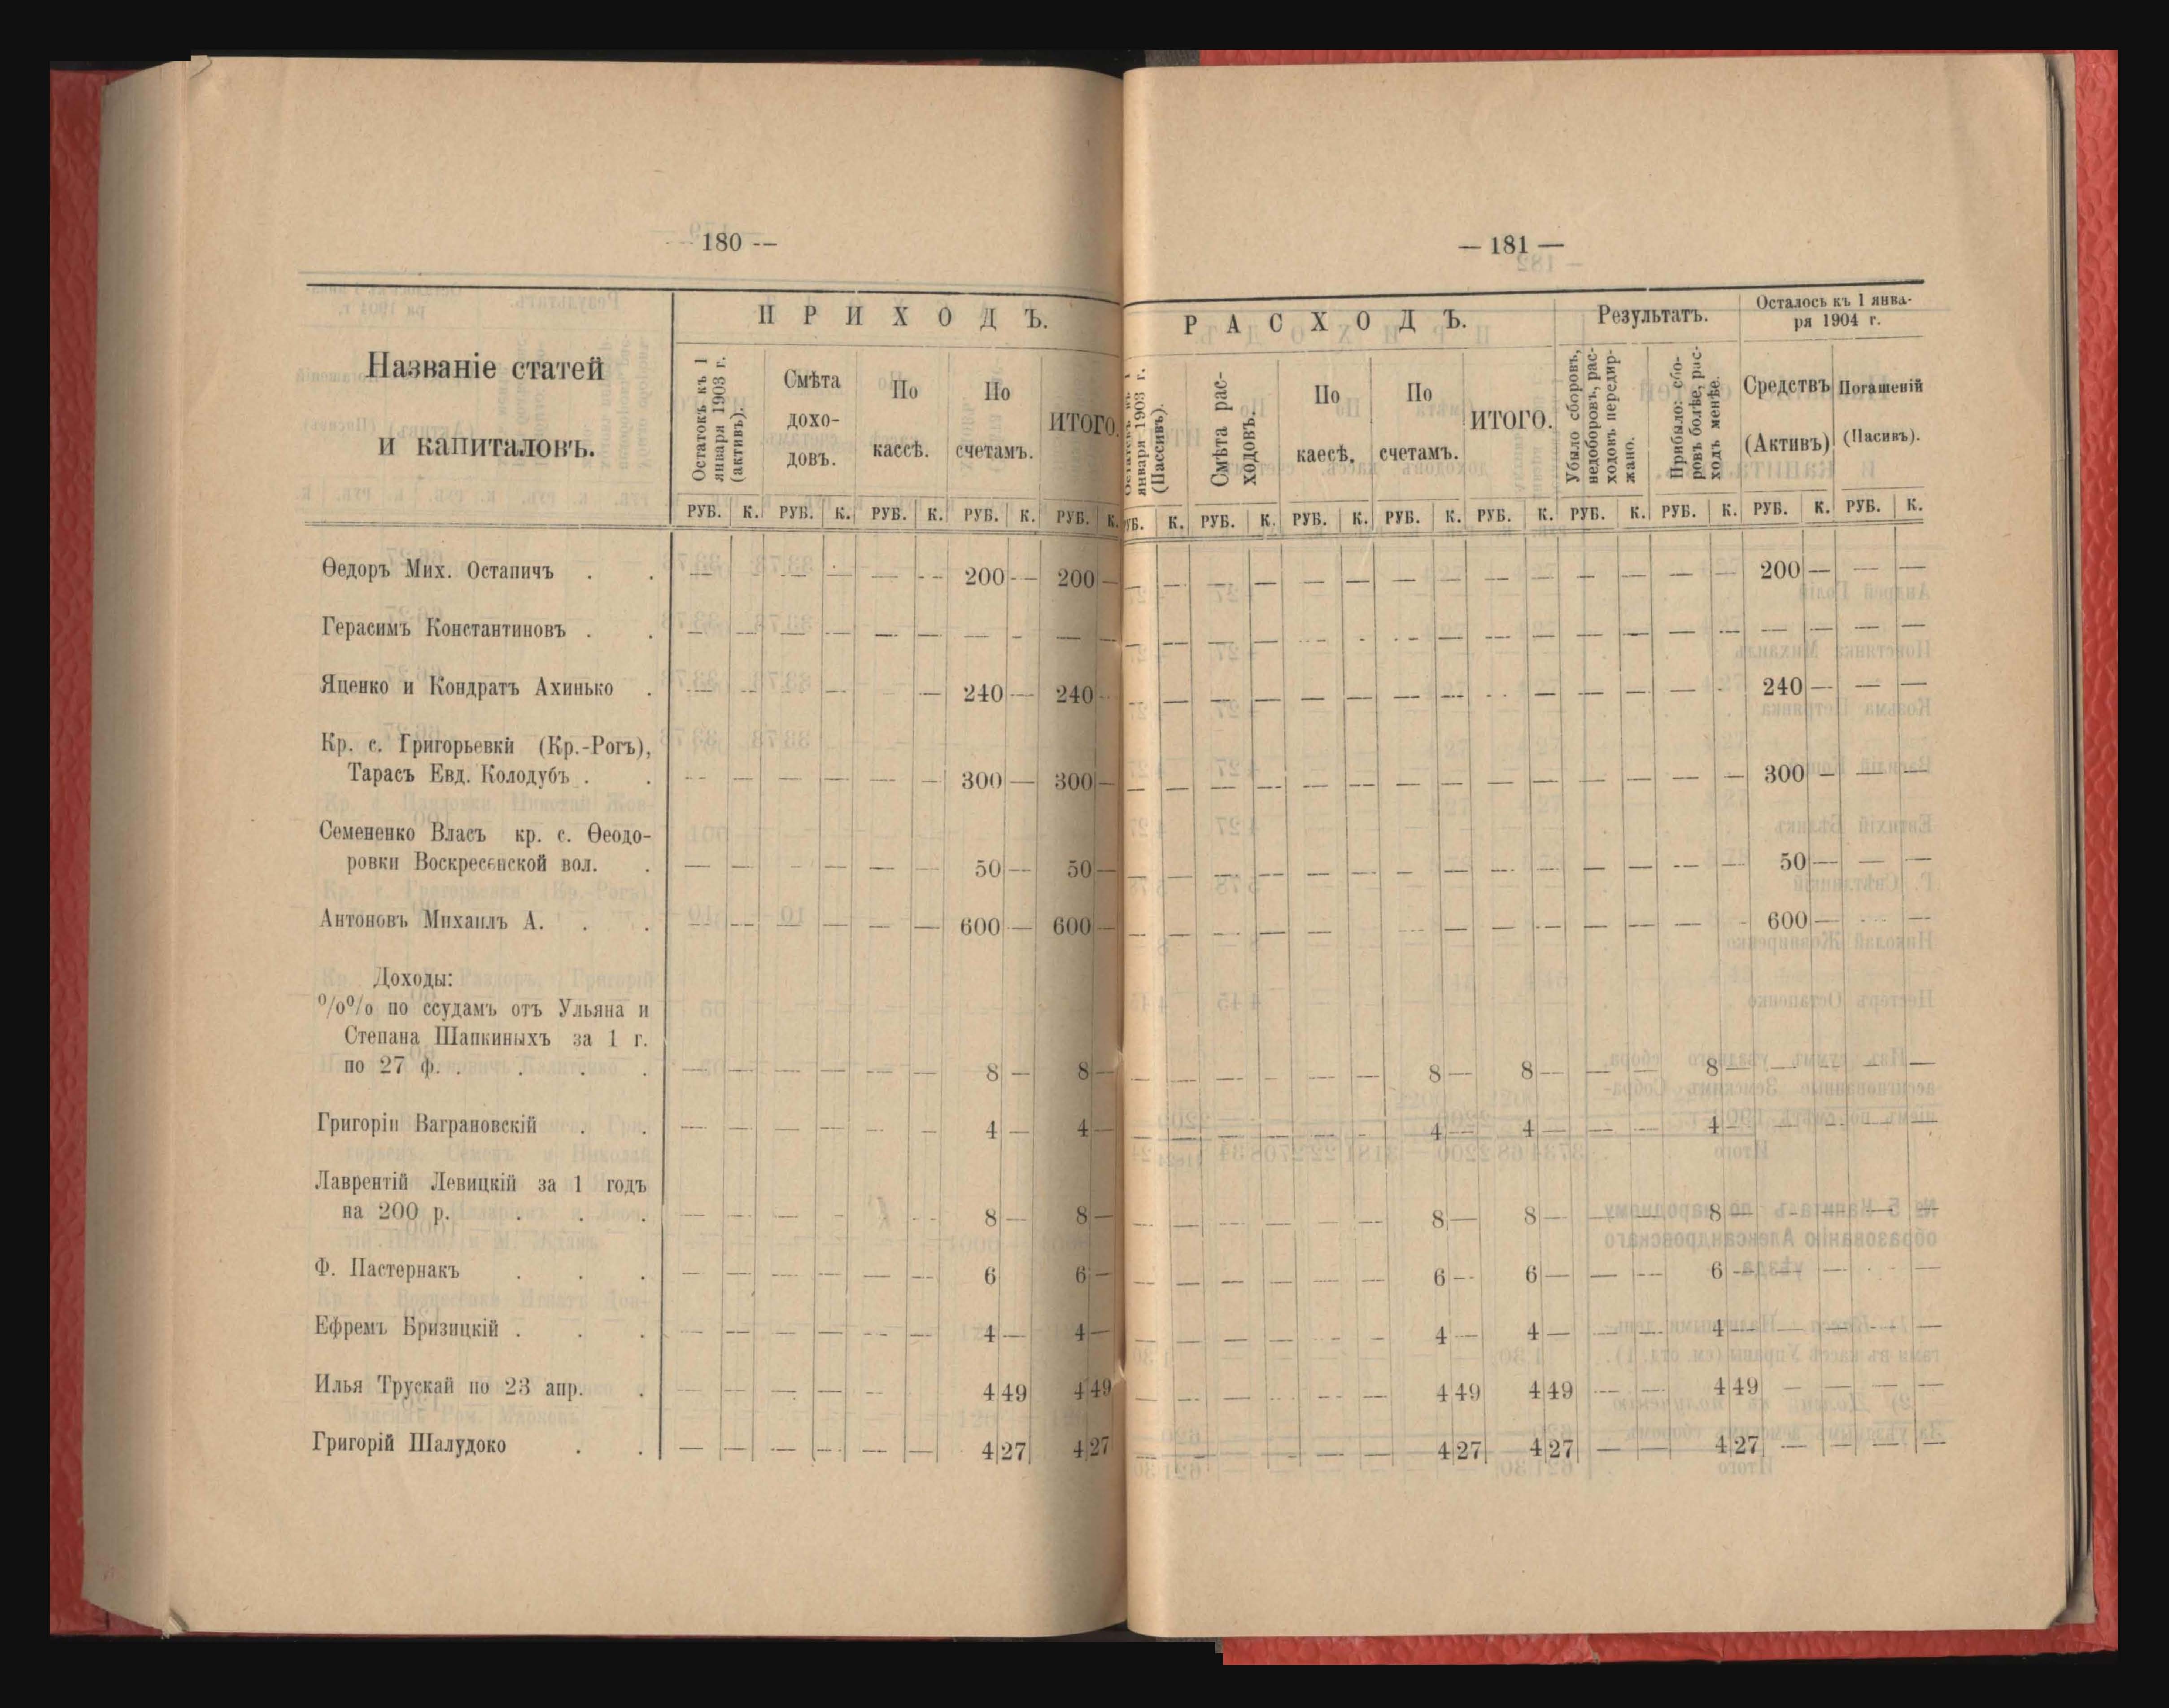 180 --
Названіе статей
и капиталовъ.
П Р И Х О Д Ъ.
Остатокъ къ 1
января 1903 г.
(активъ).
Смѣта
дохо-
довъ.
По
кассѣ.
По
счетамъ.
ИТОГО.
РУБ. К. РУБ. К. РУБ. К. РУБ. К. РУБ. К.
Ѳедоръ Мих. Остапичъ . . — — — — — — 200 — 200 —
Герасимъ Константиновъ . . — — — — — — — — — —
Яценко и Кондратъ Ахинько . — — — — — 240 — 240 —
Кр. с. Григорьевки (Кр.-Рогъ),
Тарасъ Евд. Колодубъ . . — — — — — — 300 — 300 —
Семененко Власъ кр. с. Ѳеодо-
ровки Воскресенской вол. . — — — — — — 50 — 50 —
Антоновъ Михаилъ А. . . — — — — — — 600 — 600 —
Доходы:
%% по ссудамъ отъ Ульяна и
Степана Шапкиныхъ за 1 г.
по 27 ф. . . . . — — — — — — 8 — 8 —
Григоріи Ваграновскій . . — — — — — — 4 — 4 —
Лаврентій Левицкій за 1 годъ
на 200 р. . . . — — — — — 8 — 8 —
Ф. Пастернакъ . . . — — — — — — 6 6 —
Ефремъ Бризицкій . . . — — — — — — 4 — 4 —
Илья Трускай по 23 апр. . — — — — — 4 49 4 49
Григорій Шалудоко . . — — — — — — 4 27 4 27
— 181 —
Р А С Х О Д Ъ.
Результатъ.
Осталось къ 1 янва-
ря 1904 г.
января 1903 г.
(Пассивъ).
Смѣта рас-
ходовъ.
По
каесѣ.
По
счетамъ.
ИТОГО.
Убыло сборовъ,
недоборовъ, рас-
ходовъ передир-
жано.
Прибыло: сбо-
ровъ болѣе, рас-
ходъ менѣе.
Средствъ
(Активъ)
Погашеній
(Пасивъ).
РУБ. К. РУБ. К. РУБ. К. РУБ. К. РУБ. К. РУБ. К. РУБ. К. РУБ. К. РУБ. К.
— — — — — — — — — — — — — — 200 — — —
— — — — — — — — — — — — — — — — — —
— — — — — — — — — — — — — — 240 — — —
— — — — — — — — — — — — — — 300 — — —
— — — — — — — — — — — — — — 50 — — —
— — — — — — — — — — — — — 600 — — —
— — — — — — 8 — 8 — — — 8 — — — — —
— — — — — — 4 — 4 — — — 4 — — — — —
— — — — — — 8 — 8 — — — 8 — — — — —
— — — — — — 6 — 6 — — — 6 — — — — —
— — — — — — 4 — 4 — — — 4 — — — — —
— — — — — — 4 49 4 49 — — 4 49 — — — —
— — — — — — 4 27 4 27 — — 4 27 — — — —